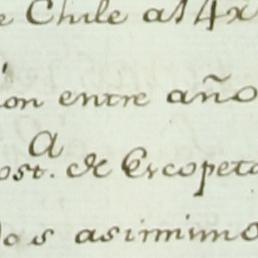 e Chile a 14 x
ion entre año
a
ost. de Escopeta
dos asimimo